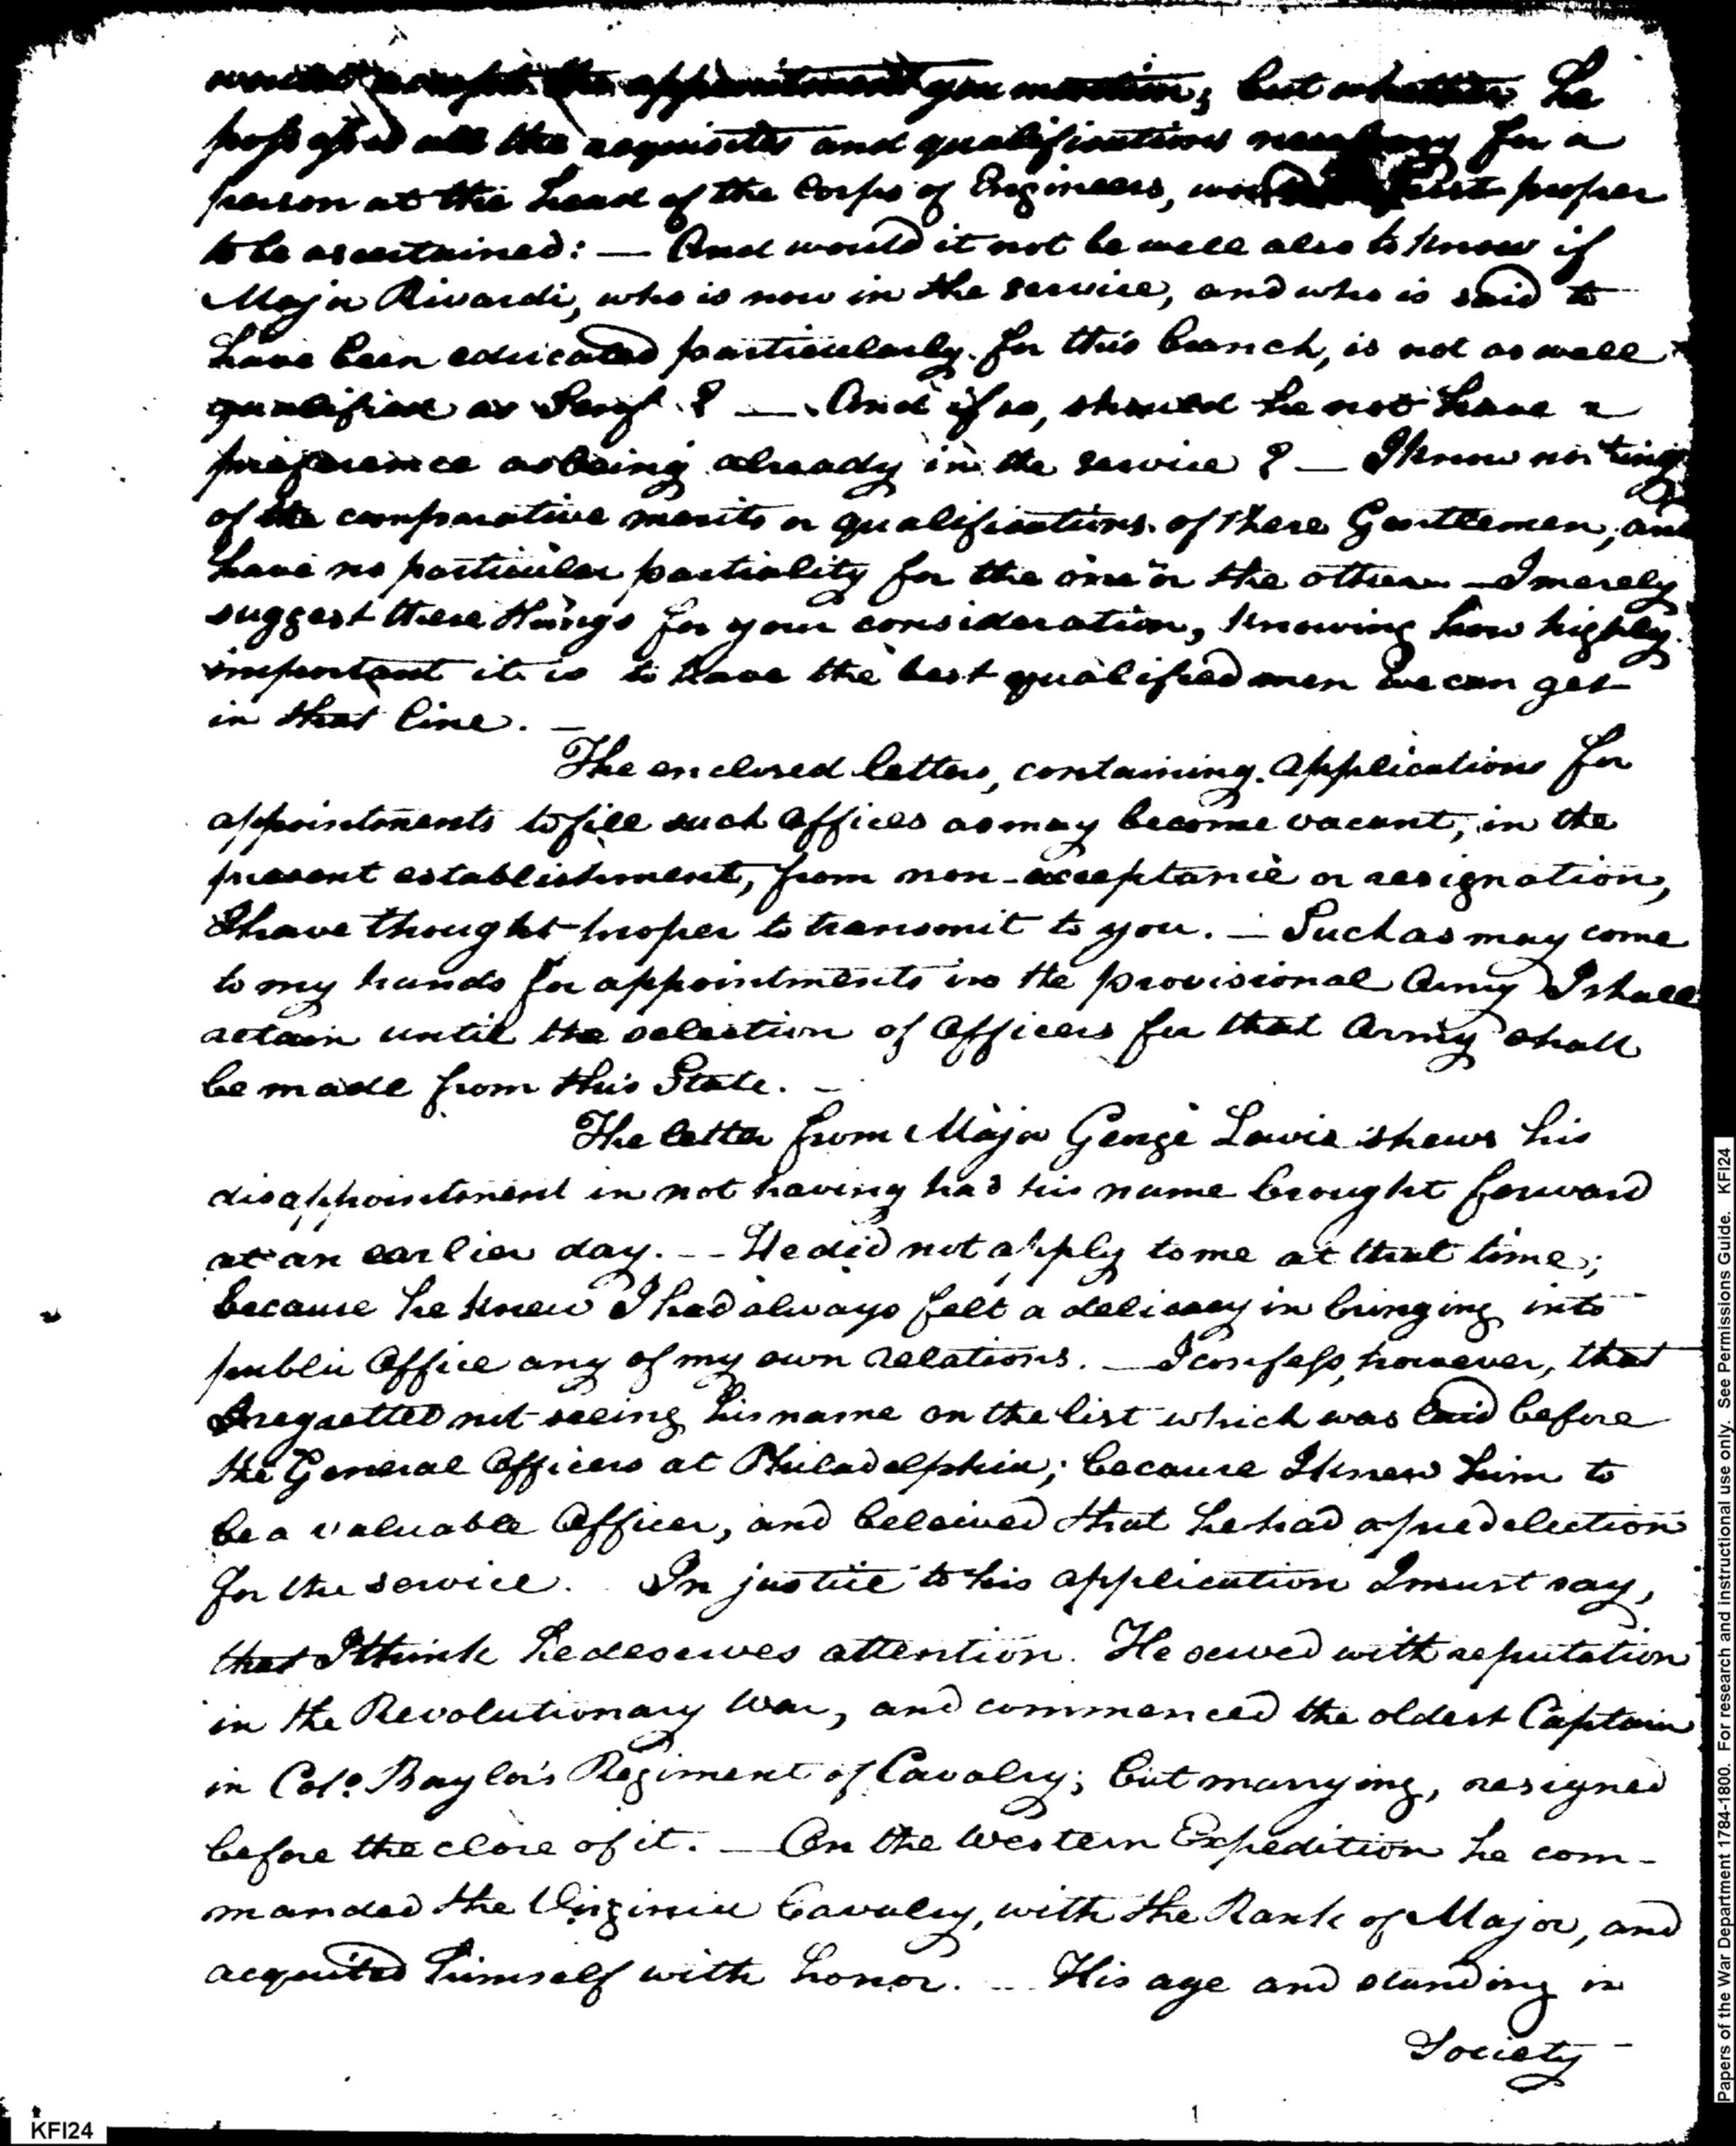 would accept the appointment you mention; but whether he
possessed all the requisites and qualifications necessary for a
person at the head of the Corps of Engineers, would first proper
to be ascertained: — And would it not be well also to know if
Major Rivardi, who is now in the service, and who is said to
have been educated particularly for this branch, is not as well
qualified as Senf? — And if so, should he not have a
preference as being already in the service? — I know nothing
of the comparative merits or qualifications of these Gentlemen, and
have no particular partiality for the one or the other — I merely
suggest these things for your consideration, knowing how highly
important it is to have the best qualified men we can get
in that line. —
The enclosed letters, containing applications for
appointments to fill such Offices as may become vacant, in the
present establishment, from non-acceptance or resignation,
I have thought proper to transmit to you. — Such as may come
to my hands for appointments in the provisional Army I shall
retain until the selection of Officers for that Army shall
be made from this State. —
The letter from Major George Lewis shews his
disappointment in not having had his name brought forward
at an earlier day. — He did not apply to me at that time;
because he knew I had always felt a delicacy in bringing into
public Office any of my own relations. — I confess, however, that
I regretted not seeing his name on the list which was laid before
the General Officers at Philadelphia; because I knew him to
be a valuable Officer, and beleived that he had a predelection
for the service. In justice to his application I must say,
that I think he deserves attention. He served with reputation
in the Revolutionary War, and commenced the oldest Captain
in Colo. Baylor's Regiment of Cavalry; but marrying, resigned
before the close of it. — On the Western Expedition he com-
manded the Virginia Cavalry, with the Rank of Major, and
acquited himself with honor. — His age and standing in
Society
1
KFI24
Papers of the War Department 1784-1800. For research and instructional use only. See Permissions Guide. KFI24